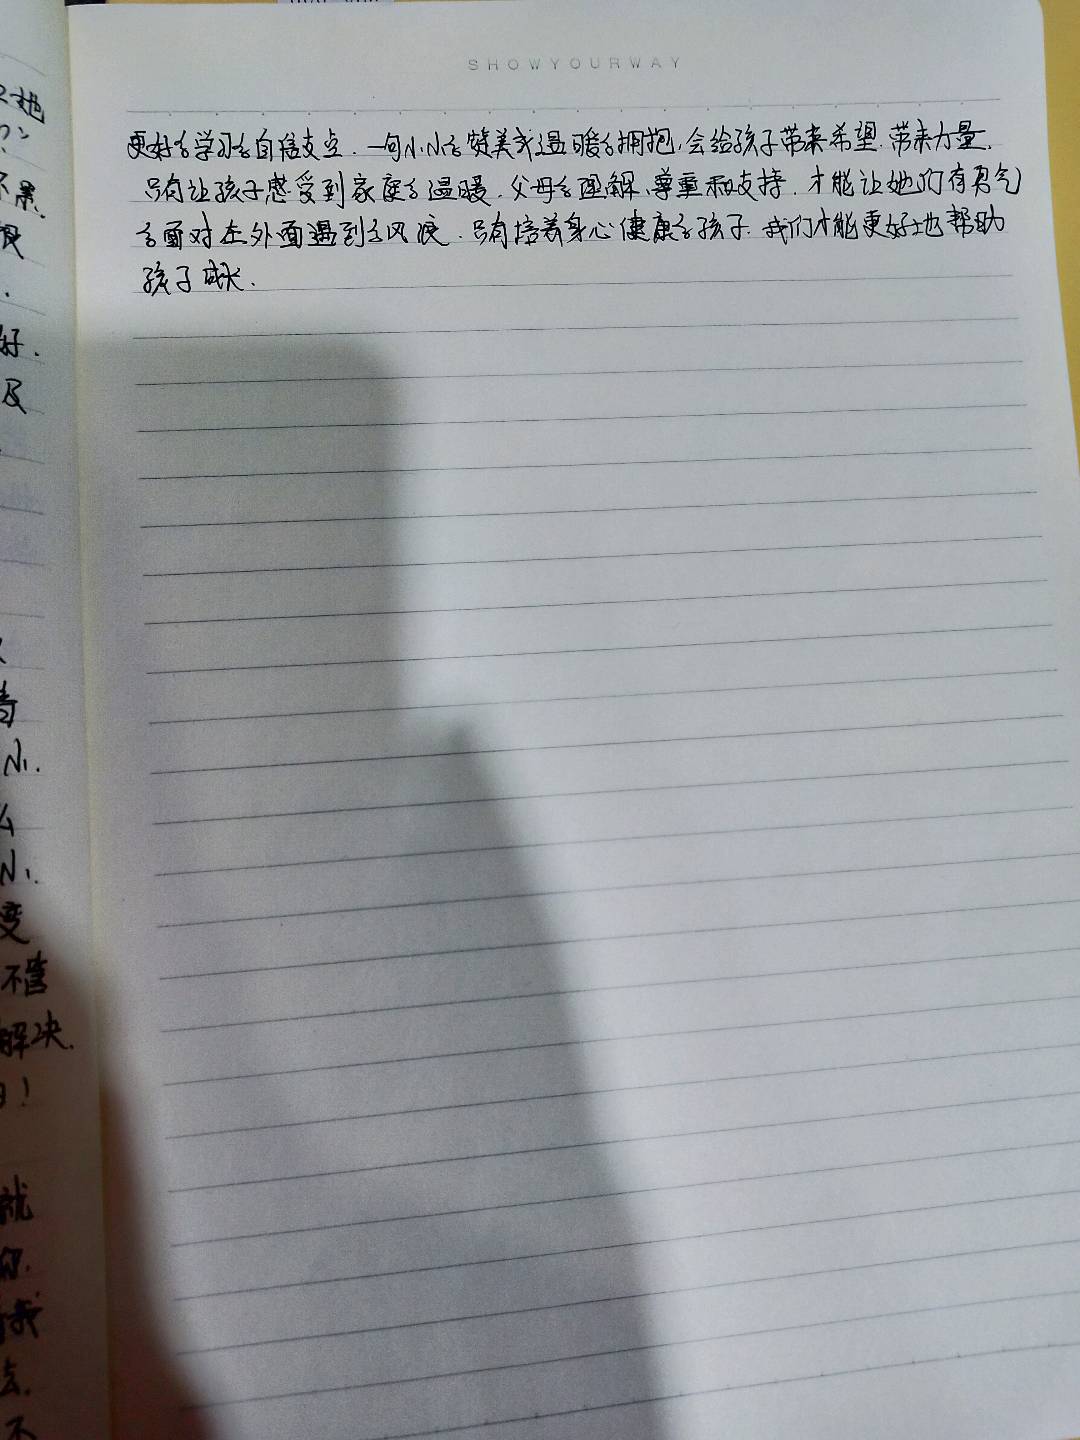 SHOWYOURWAY
更好的学习的自信支点.一句小小的赞美或温暖的拥抱,会给孩子带来希望.带来力量.
只有让孩子感受到家庭的温暖.父母的理解、尊重和支持.才能让她们有勇气
的面对在外面遇到的风浪.只有培养身心健康的孩子.我们才能更好地帮助
孩子成长.
她
累.
好.
及
小.
么
小.
变
不管
解决.
!
就
你.
我
去.
不